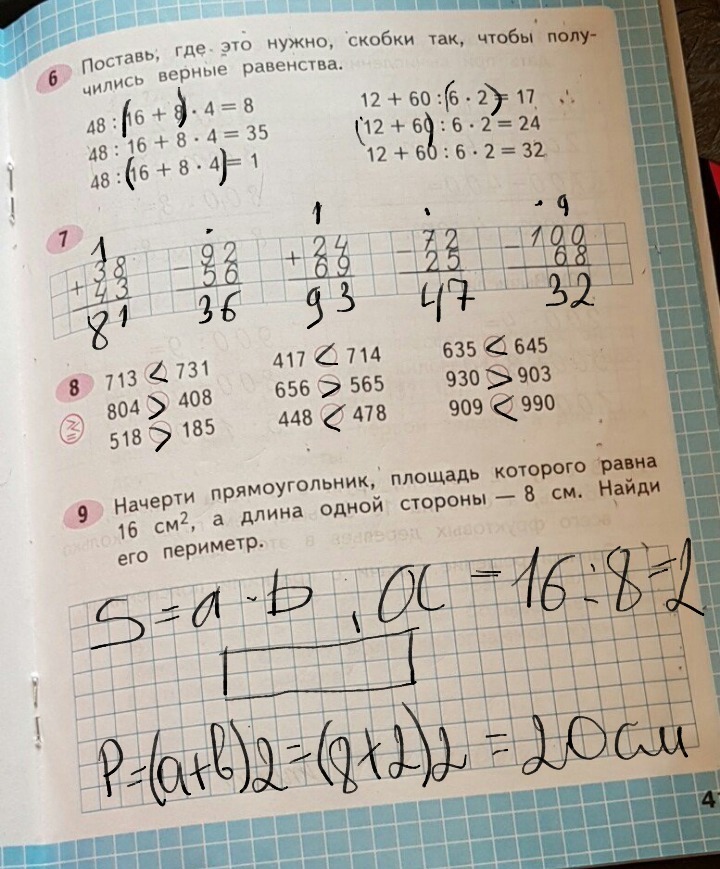 6 Поставь, где это нужно, скобки так, чтобы полу-
чились верные равенства.
48 : (16 + 8) · 4 = 8
48 : 16 + 8 · 4 = 35
48 : (16 + 8 · 4) = 1
12 + 60 : (6 · 2) = 17
(12 + 60) : 6 · 2 = 24
12 + 60 : 6 · 2 = 32
7
1 · 1 · · 9
+ 38 − 92 + 24 − 72 − 100
43 56 69 25 68
81 36 93 47 32
8 713 < 731 417 < 714 635 < 645
804 > 408 656 > 565 930 > 903
518 > 185 448 < 478 909 < 990
9 Начерти прямоугольник, площадь которого равна
16 см², а длина одной стороны — 8 см. Найди
его периметр.
S = a · b , a = 16 : 8 = 2
P = (a + b) 2 = (8 + 2) 2 = 20 см
4